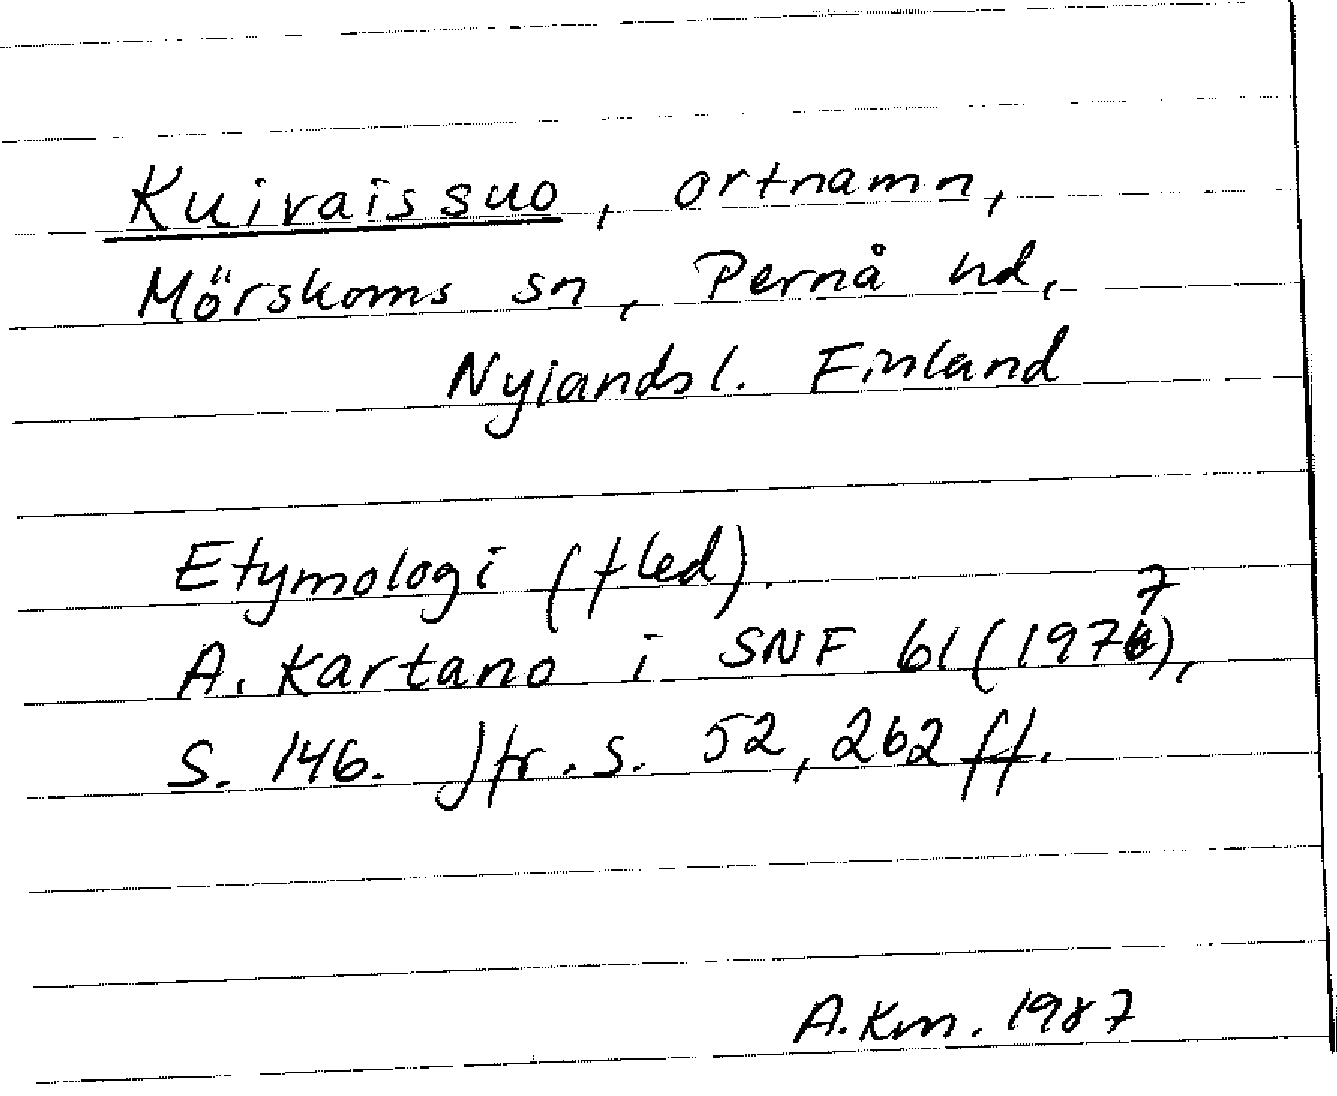 Kuivaissuo, ortnamn,
Mörskoms sn, Pernå hd,
Nylands l. Finland
Etymologi (fled).
A. Kartano i SNF 61 (1977),
S. 146. Jfr. s. 52, 262 ff.
A.Km. 1987